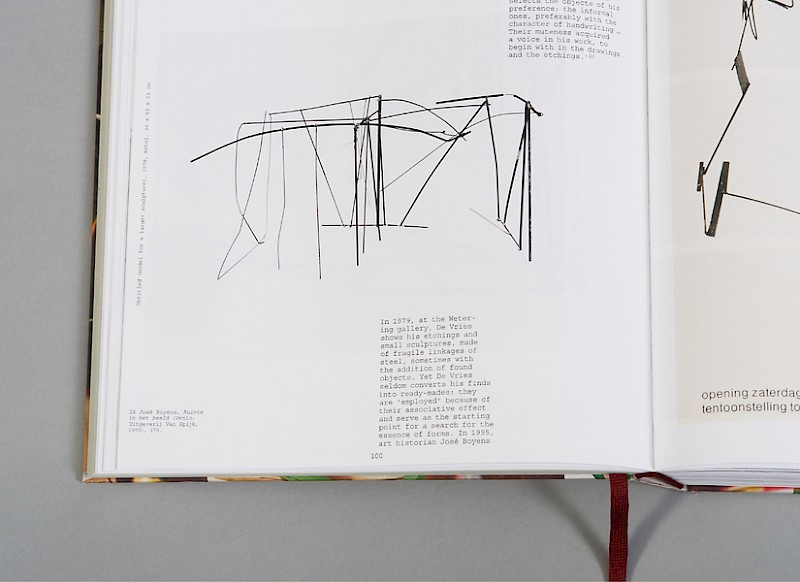 selects the objects of his
preference: the informal
ones, preferably with the
character of handwriting –
Their muteness acquired
a voice in his work, to
begin with in the drawings
and the etchings.
Untitled model for a larger sculpture, 1978, metal, 24 x 53 x 23 cm
In 1979, at the Weter-
ing gallery, De Vries
shows his etchings and
small sculptures, made
of fragile linkages of
steel, sometimes with
the addition of found
objects. Yet De Vries
seldom converts his finds
into ready-mades: they
are 'employed' because of
their associative effect
and serve as the starting
point for a search for the
essence of forms. In 1995,
art historian José Boyens
26 José Boyens, Ruimte
in het beeld (Venlo:
Uitgeverij Van Spijk,
1995), 175.
100
opening zaterdag
tentoonstelling to